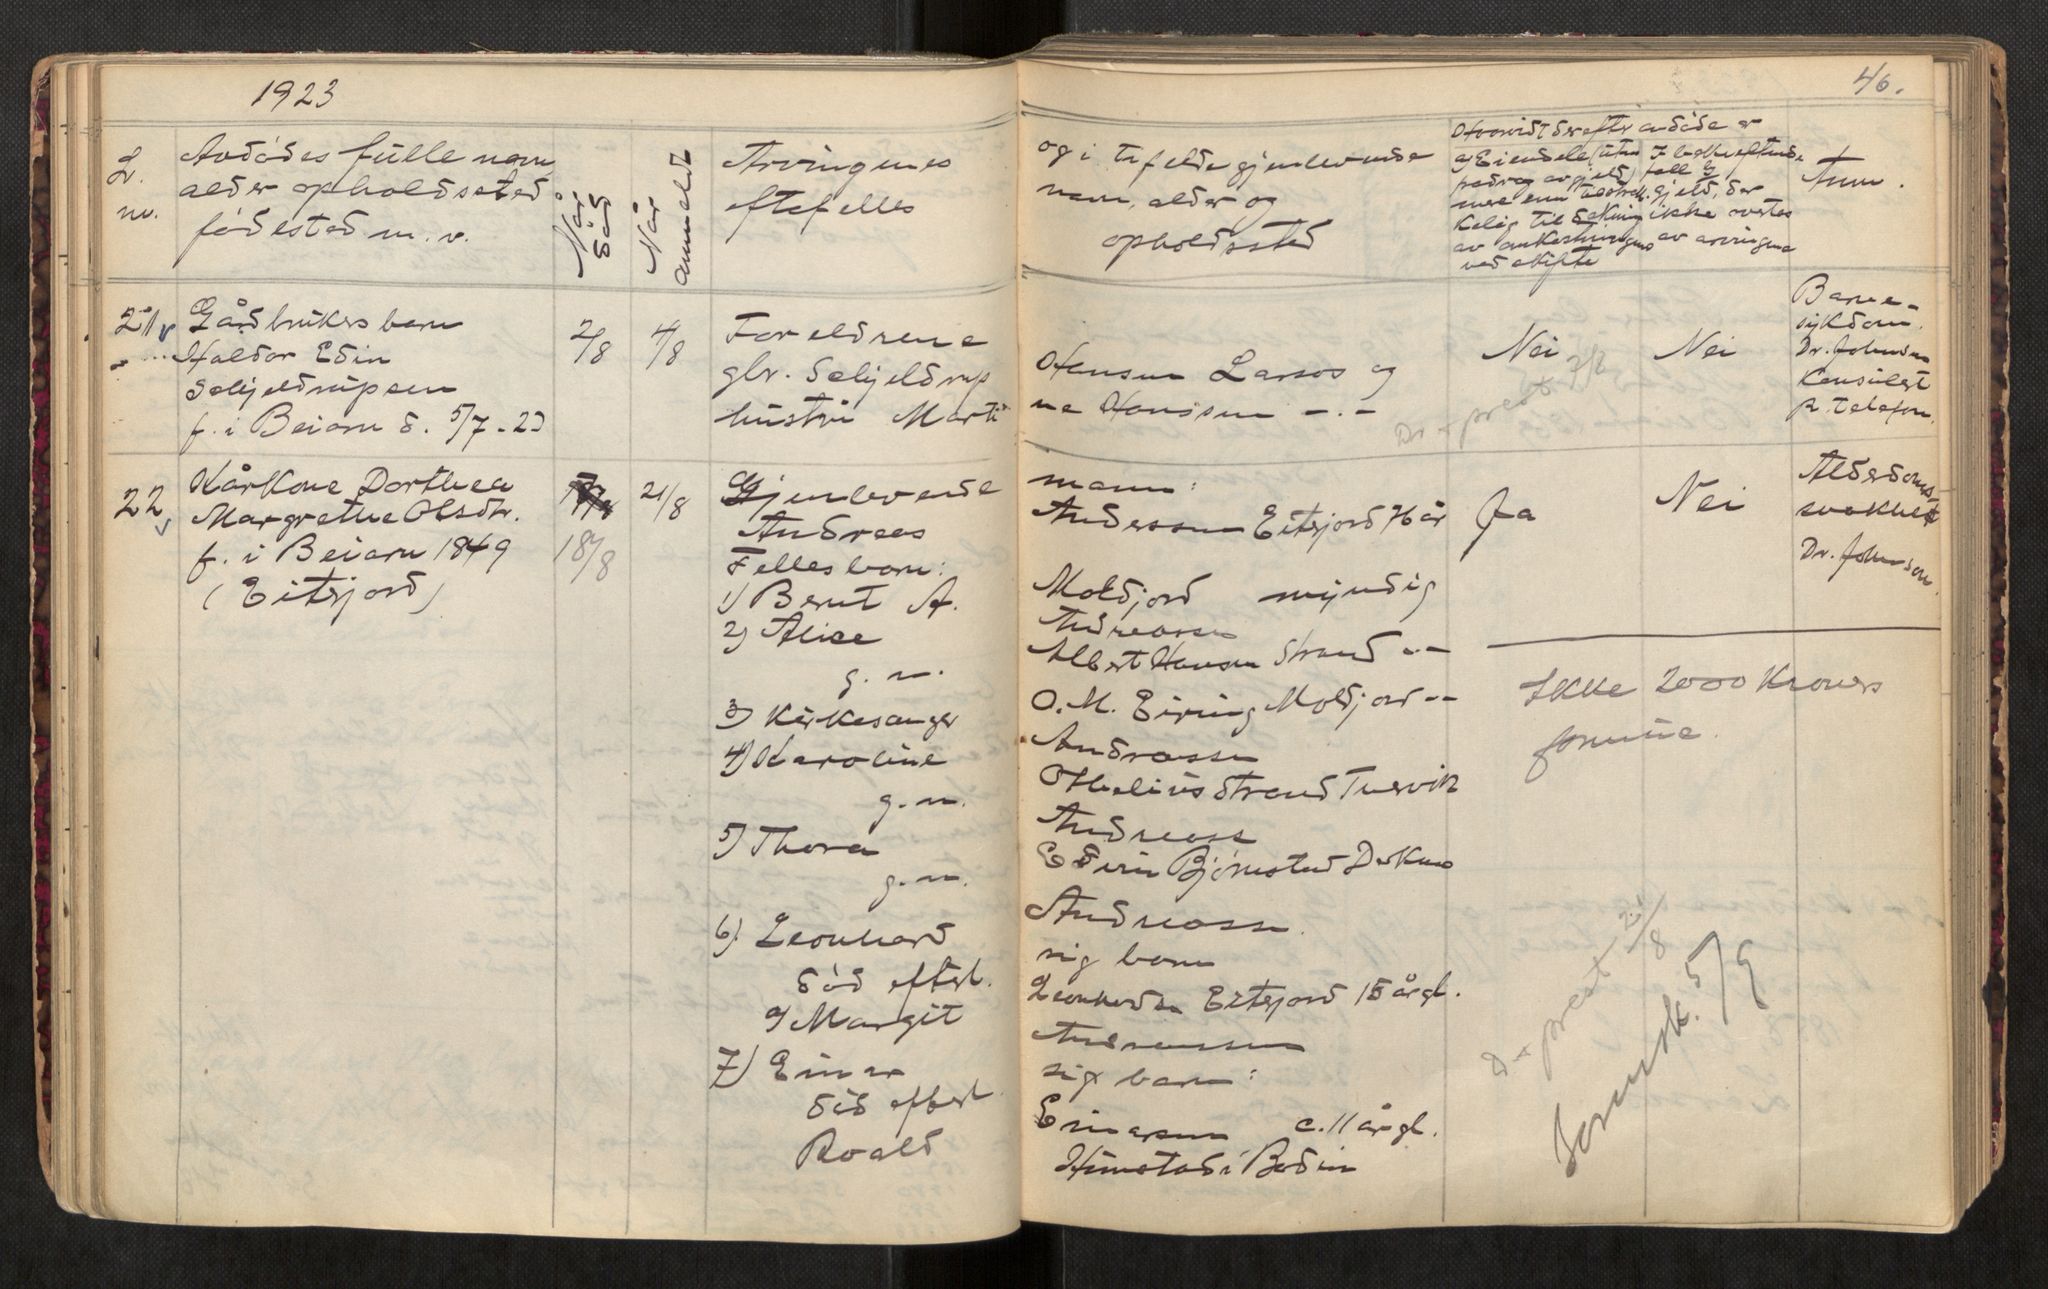 1923
46.
L.
nr.
Avdødes fulle navn,
alder opholdssted
fødested m. v.
Når
død
Når
anmeldt
Arvingenes
og i tilfelde gjenlevende
navn, alder og
opholdssted
Hvorvidt der efter avdøde er
ved skifte
Anm.
21
Gårdbrukers barn
Haldor Edin
Schjeldrupsen
f. i Beiarn d. 5/7-23
2/8
4/8
Foreldrene
gbr. Schjeldrup
hustru Marti
Hansen Larsos og
ne Hanssen -.-
Nei
Nei
Dr + prest 7/8
Barne-
sykdom.
Dr. Johnsen
Konsulert
p. telefon.
22
Kårkone Dorthea
Margrethe Olsdtr.
f. i Beiarn 1849
(Eitsjord)
18/8
21/8
Gjenlevende
Andreas
Felles barn:
1) Bernt A.
2) Alice
g. m.
3) Kirkesanger
4) Karoline
g. m.
5) Thora
g. m.
6). Leonhard
død efterl.
a) Margit
7) Einar
død efterl.
Roald
mann:
Anderssen Eitsjord 76 år
Moldjord myndig
Andreassen
Albert Hansen Strand -.-
O. M. Eiring Moldjord -.-
Andreassen
Othelius Strand Tuervik
Andreass
Edvin Bjørnstad
Andreassen
sig barn
Leonhardsen Eitsjord 15 årgl.
Andreassen
sig barn:
Einarsen c. 11 årgl.
Himstad i Bodin
Ja
Nei
Alderdoms-
svakhet
Dr. Johnson.
Ikke 2000 Kroners
formue.
D + prest 21/8
5/9